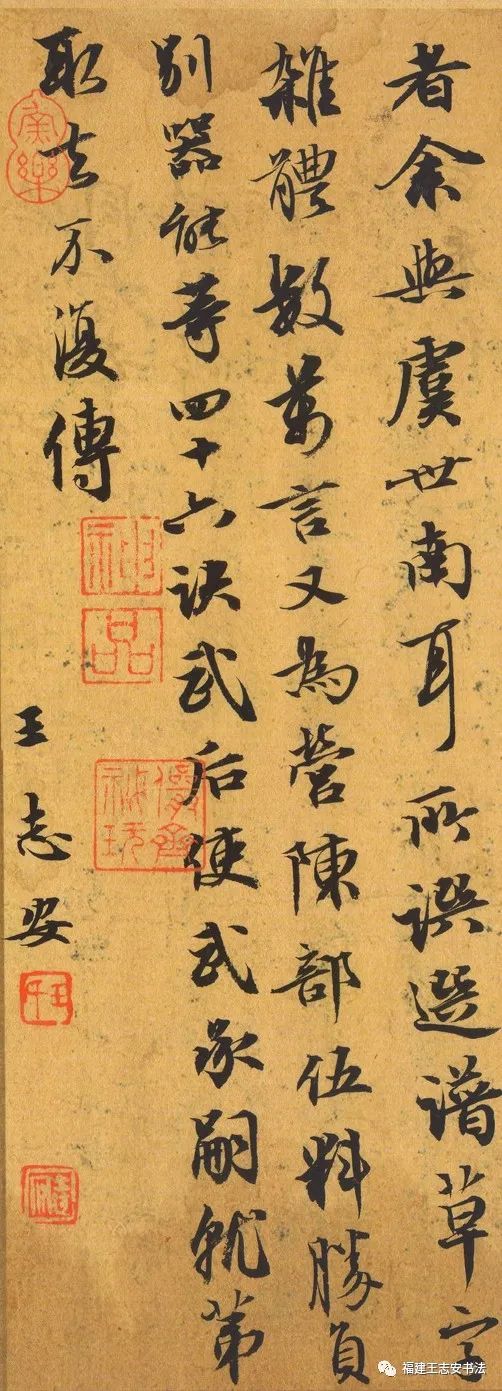 者余與虞世南耳所譔選譜草字
雜體數萬言又為營陳部伍料勝負
別器能等四十六訣武后使武承嗣就第
取去不復傳
王志安
神品
福建王志安书法